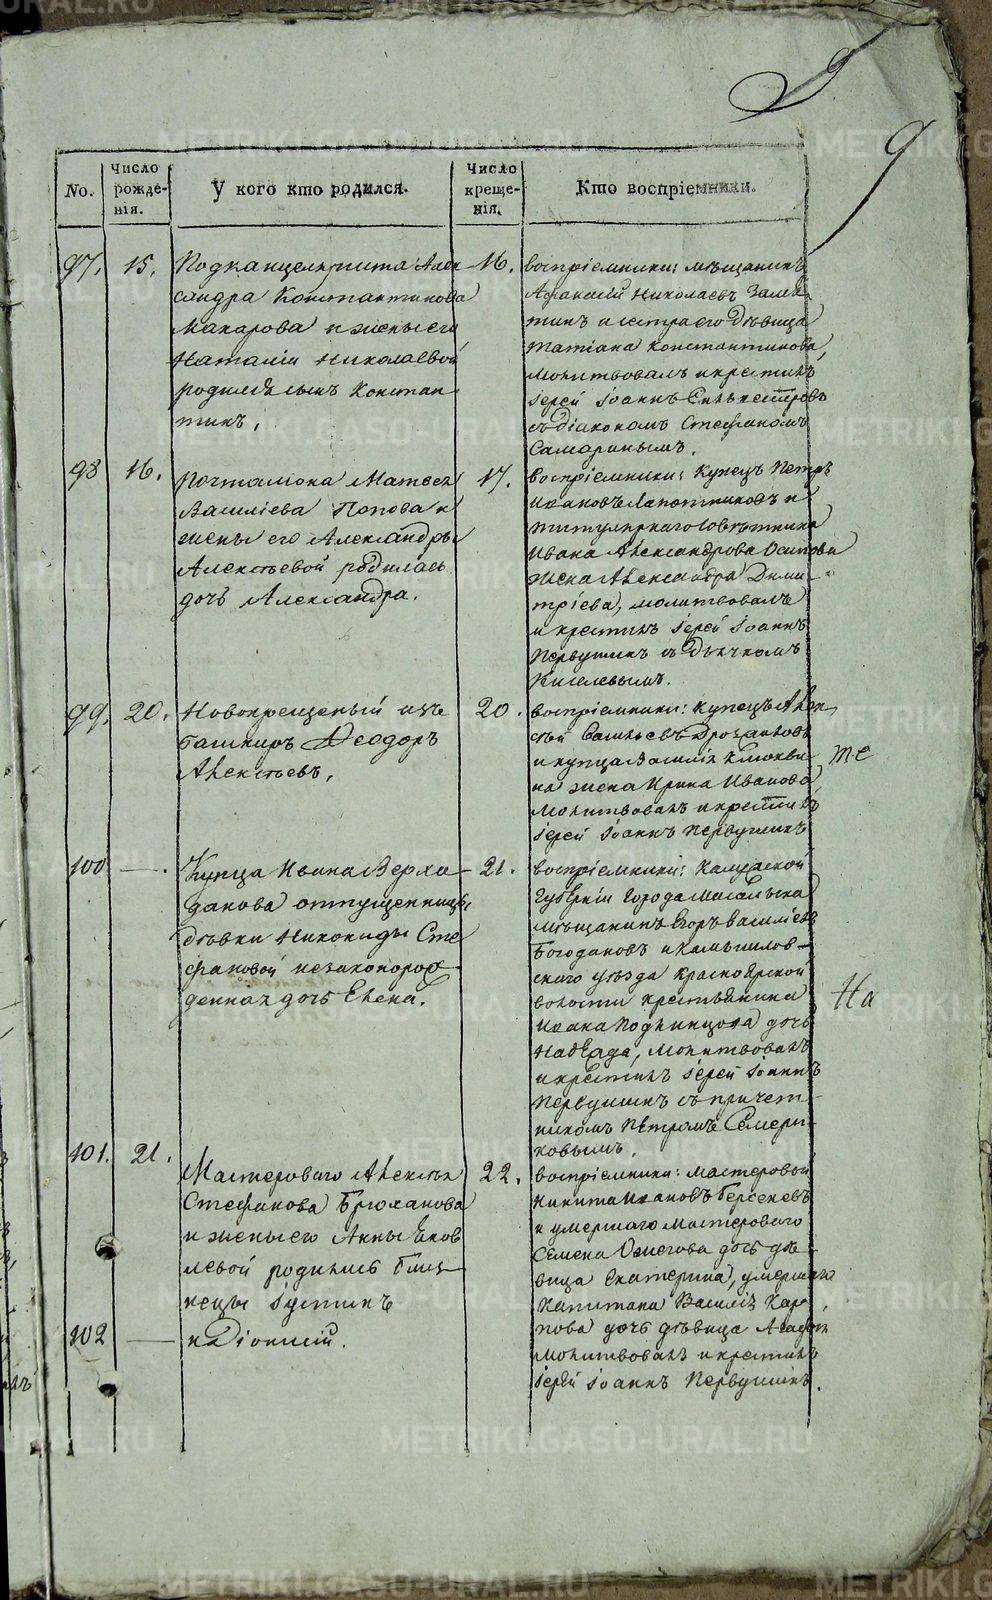 9
No.
Число рожде-нія.
У кого кто родился.
Число креще-нія.
Кто воспріемники.
97.
15.
Подканцеляриста Алек
сандра Константинова
Макарова и жены его
Наталіи Николаевой
родился сынъ Констан
тинъ.
16.
воспріемники: мѣщанинъ
Афанасій Николаевъ
и сестра его дѣвица
Татіана Константинова,
Молитвовалъ и крестилъ
іерей Іоаннъ Сильвестровъ
съ діакономъ Стефаномъ
Самаринымъ.
98
16.
Почталіона Матвея
Василіева Попова и
жены его Александры
Алексѣевой родилась
дочь Александра.
17.
воспріемники: купецъ Петръ
Ивановъ Лапотниковъ и
титулярнаго Совѣтника
Ивана Александрова Осипова
жена Александра Дими-
тріева, молитвовалъ
и крестилъ іерей Іоаннъ
Первушинъ съ дьячкомъ
Киселевымъ.
99.
20.
Новокрещеный изъ
башкиръ Ѳеодоръ
Алексѣевъ.
20.
воспріемники: купецъ Алек
сѣй Савельевъ
и купца Василія Клюкви
на жена Ирина Иванова
Молитвовалъ и крестилъ
іерей Іоаннъ Первушинъ
те
100
—.
Купца Ивана Верхо
данова отпущенницы
дѣвки Никониды Сте
фановой незаконорож
денная дочь Елена.
21.
воспріемники: Калужской
Губерніи Города Масальска
мѣщанинъ Егоръ Василіевъ
Богдановъ и Камышлов-
скаго уѣзда Красноярской
волости крестьянина
Ивана Подкинцова дочь
Надежда, Молитвовалъ
и крестилъ іерей Іоаннъ
Первушинъ съ причет-
никомъ Петромъ Семери-
ковымъ.
На
101.
21.
Мастероваго Алексѣя
Стефанова Брюханова
и жены его Анны Яков
левой родились близ
нецы Іустинъ
22.
воспріемники: мастеровой
Никита Ивановъ Берсеневъ
и умершаго мастероваго
Семена Ожегова дочь дѣ-
вица Екатерина, умершаго
Капитана Василія Кар
пова дочь дѣвица
Молитвовалъ и крестилъ
іерей Іоаннъ Первушинъ.
102
—
и Діонисій.
METRIKI.GASO-URAL.RU